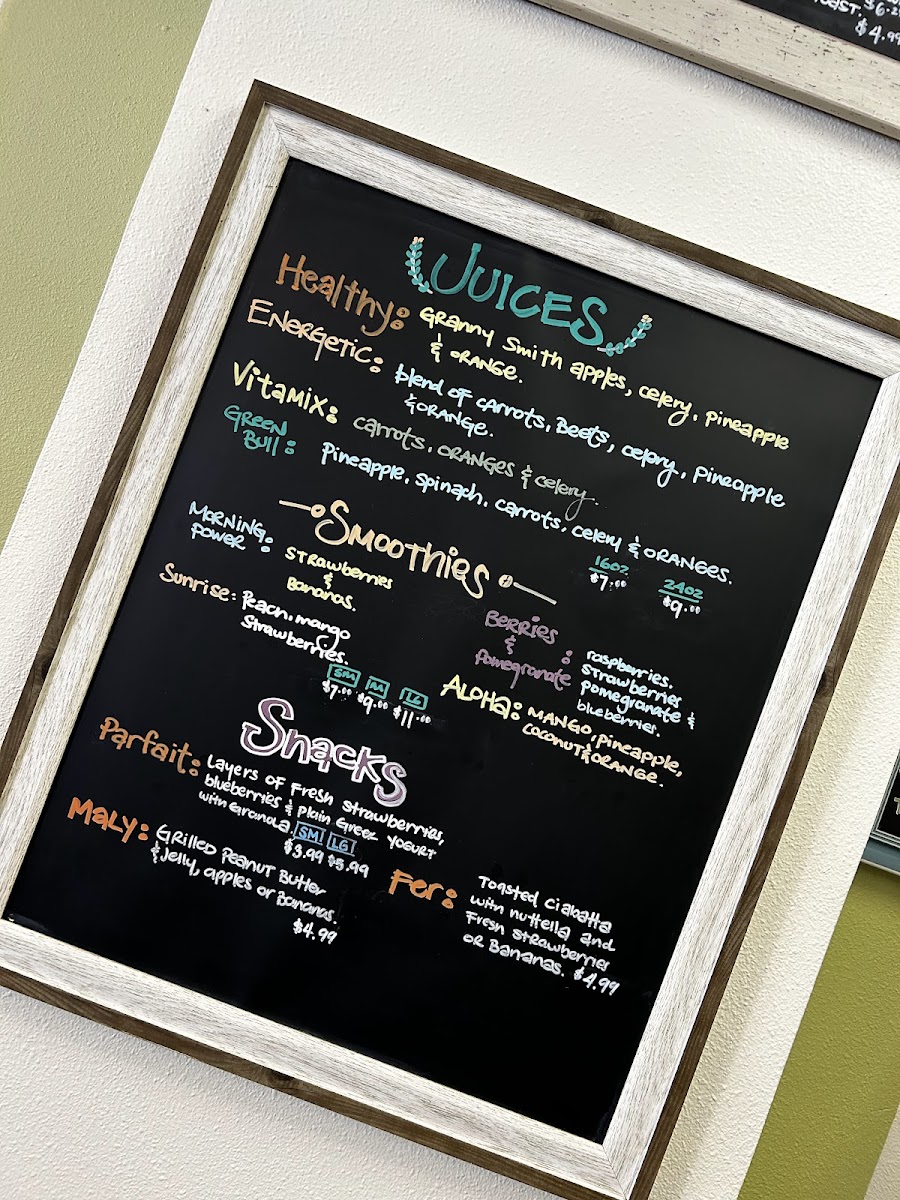 OAST. $6.2
$4.99
JUICES
Healthy: Granny Smith apples, celery, pineapple
& ORANGE.
ENERGETIC: blend of carrots, Beets, celery, pineapple
& ORANGE.
Vitamix: carrots, ORANGES & celery.
GREEN
Bull: Pineapple, spinach, carrots, celery & ORANGES.
16oz 24oz
$7.00 $9.00
Smoothies
MORNING
POWER: STRAWberries
&
Bananas.
Sunrise: Peach, mango
Strawberries.
SM M LG
$7.00 $9.00 $11.00
BERRIES
&
Pomegranate: raspberries.
strawberries
pomegranate &
blueberries.
ALOHA: MANGO, pineapple,
COCONUT & ORANGE.
Snacks
Parfait: Layers of Fresh Strawberries,
blueberries & plain Greek YOGURT
with Granola. SM LG
$3.99 $5.99
MALY: GRILLED PEANUT BUTTER
& Jelly, apples or Bananas.
$4.99
Fer: Toasted Ciabatta
with nuttella and
Fresh Strawberries
or Bananas. $4.99